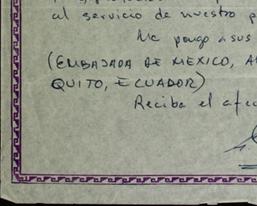 al servicio de nuestro p
Me pongo a sus
(EMBAJADA DE MEXICO, A
QUITO, ECUADOR)
Reciba el afec